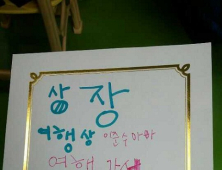 상장
여행상 이준수 아빠
여행